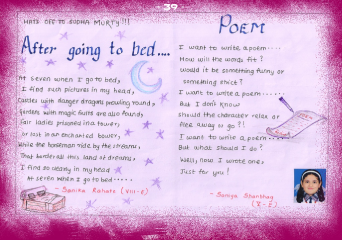 - 39 -
HATS OFF TO SUDHA MURTY!!!
After going to bed....
At seven when I go to bed,
I find such pictures in my head,
Castles with danger dragons prowling round,
Gardens with magic fruits are also found;
Fair ladies prisoned in a tower,
or lost in an enchanted bower,
While the horseman ride by the streams,
That borders all this land of dreams,
I find so clearly in my head
At seven when I go to bed.....
- Sanika Rahate (VIII-E)
POEM
I want to write a poem....
How will the words fit?
Would it be something funny or
something strict?
I want to write a poem.....
But I don't know
should the character relax or
flee away or go?!
I want to write a poem....
But what should I do?
Well, now I wrote one,
Just for you!